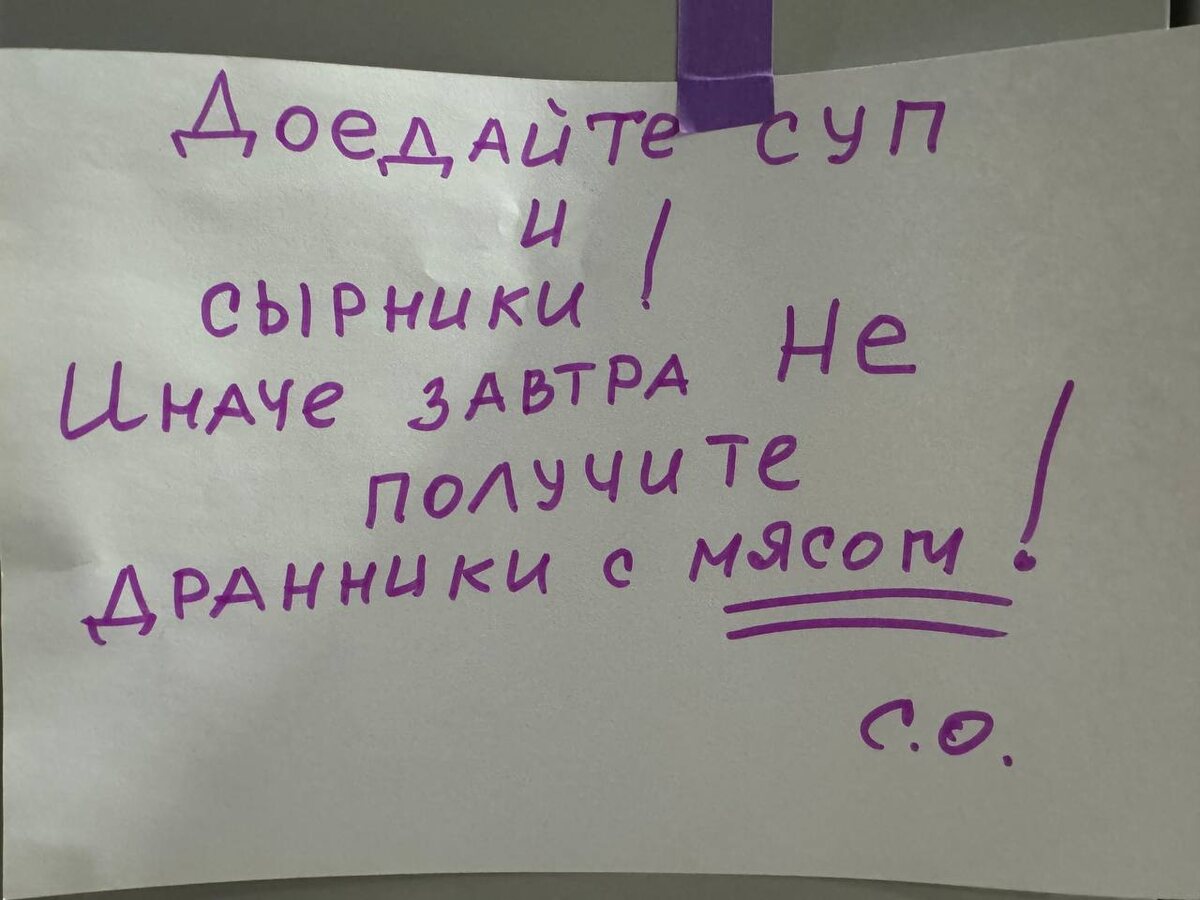 Доедайте суп
и
сырники!
Иначе завтра Не
получите
дранники с мясом!
С.О.